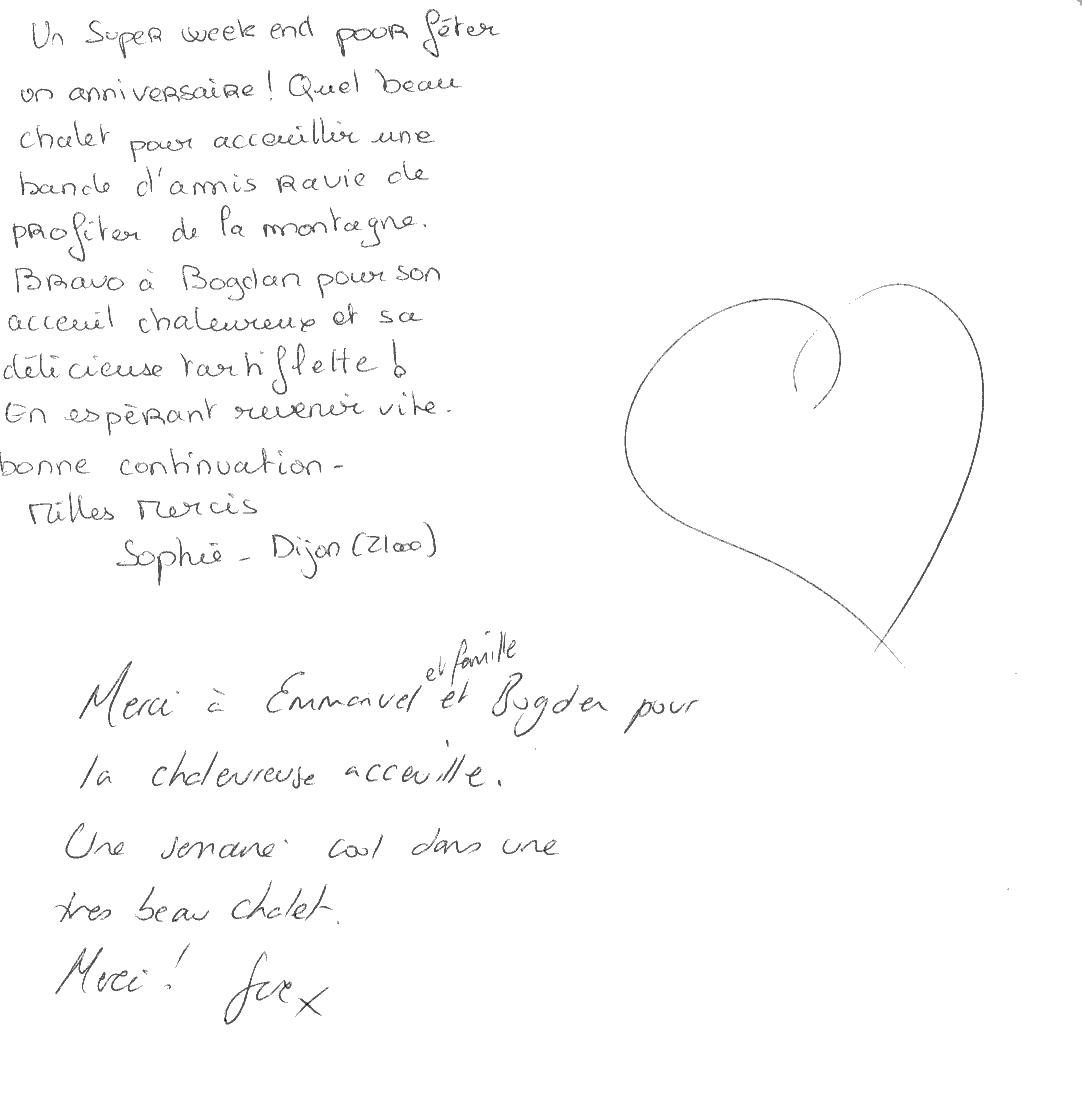 Un Super week end pour fêter
un anniversaire! Quel beau
chalet pour accouillir une
bande d'amis Ravie de
profiter de la montagne.
Bravo à Bogdan pour son
acceuil chaleureux et sa
délicieuse tartiflette!
En espèrant revenir vite.
bonne continuation -
Milles Mercis
Sophie - Dijon (21000)
et famille
Merci à Emmanuel et Bogdan pour
la chaleureuse acceuille.
Une semaine cool dans une
tres beau chalet.
Merci!